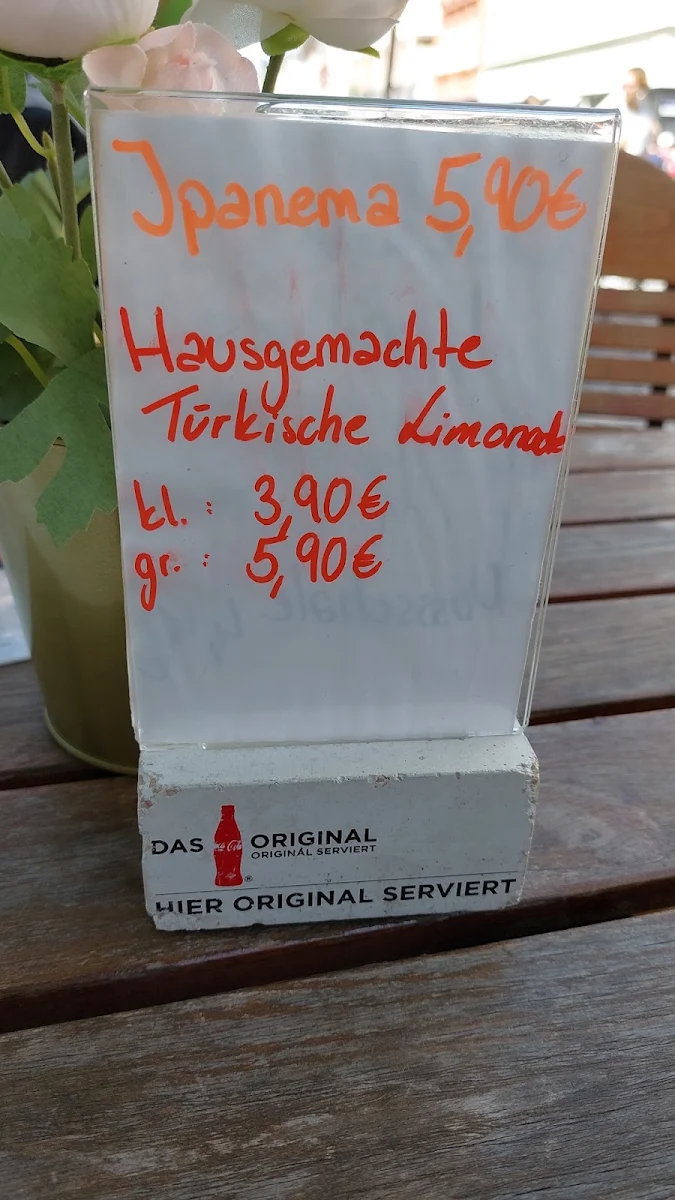 Ipanema 5,90€
Hausgemachte
Türkische Limonade
kl.: 3,90€
gr.: 5,90€
DAS Coca-Cola ® ORIGINAL
ORIGINAL SERVIERT
HIER ORIGINAL SERVIERT